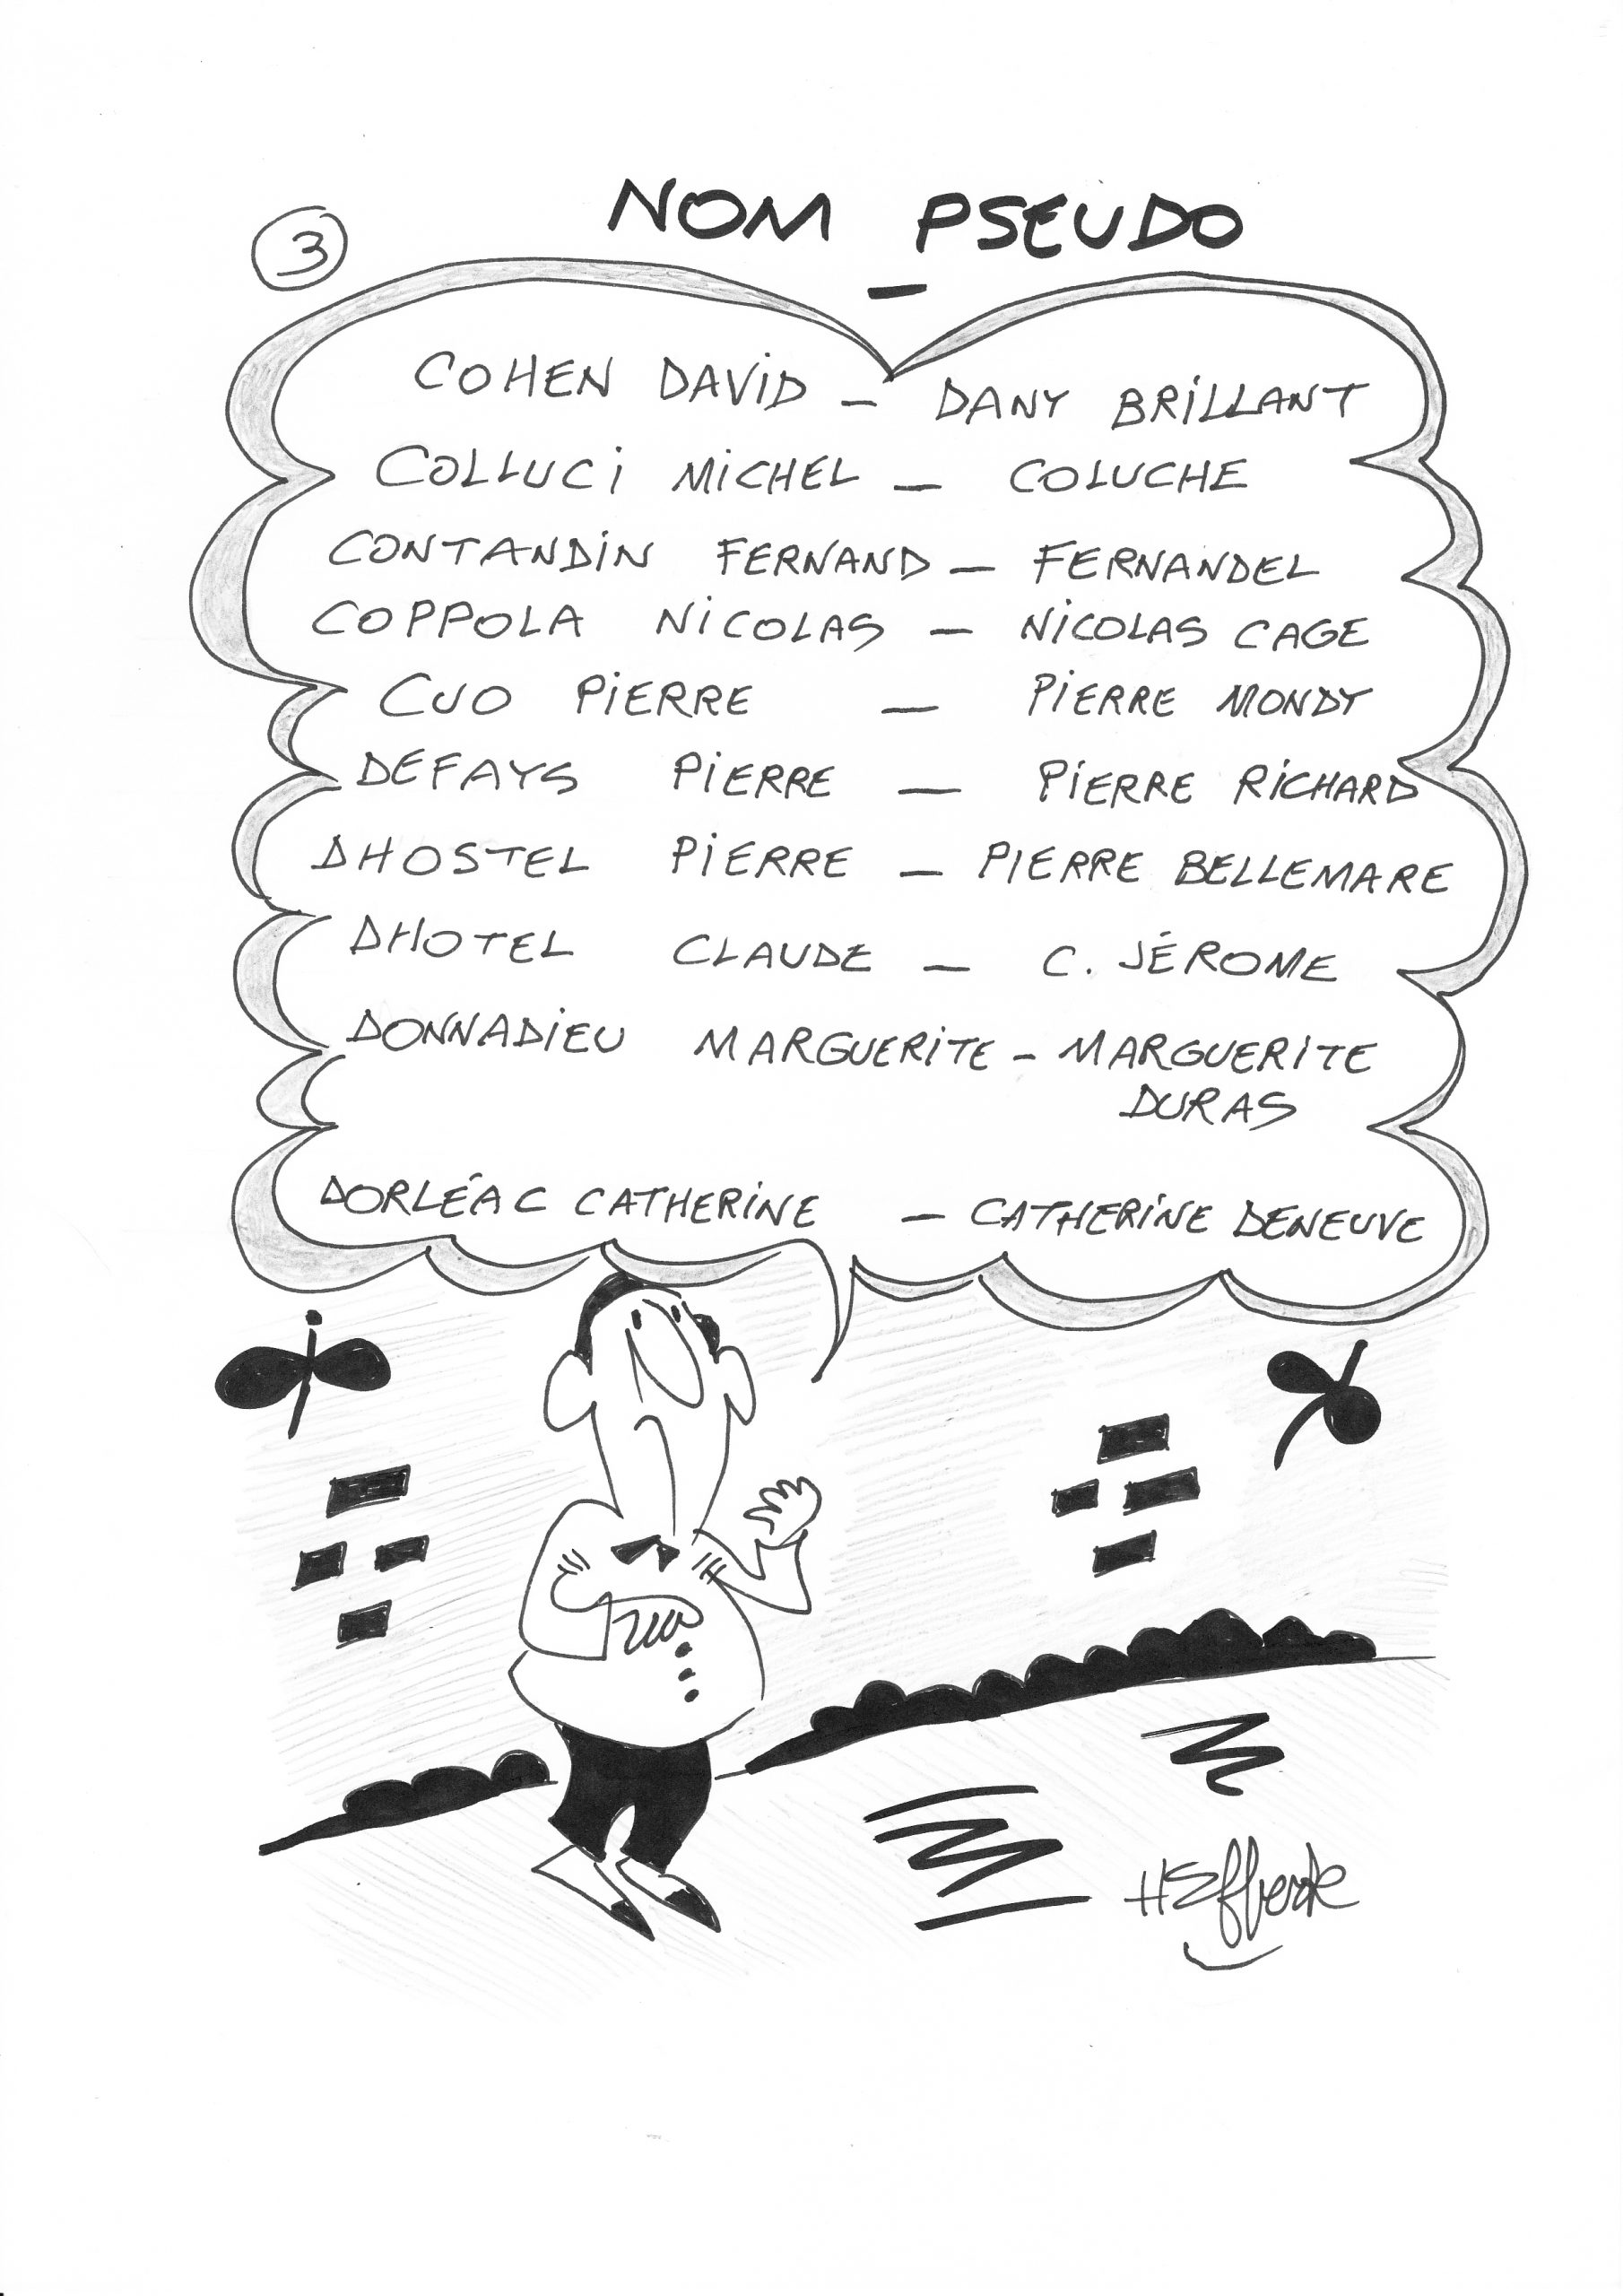 3
NOM PSEUDO
–
COHEN DAVID – DANY BRiLLANT
COLLUCi MiCHEL – COLUCHE
CONTANDiN FERNAND – FERNANDEL
COPPOLA NiCOLAS – NiCOLAS CAGE
CUO PiERRE – PiERRE MONDY
DEFAYS PiERRE – PiERRE RiCHARD
DHOSTEL PiERRE – PIERRE BELLEMARE
DHOTEL CLAUDE – C. JÉROME
DONNADiEU MARGUERiTE – MARGUERiTE
DURAS
DORLÉAC CATHERiNE – CATHERiNE DENEUVE